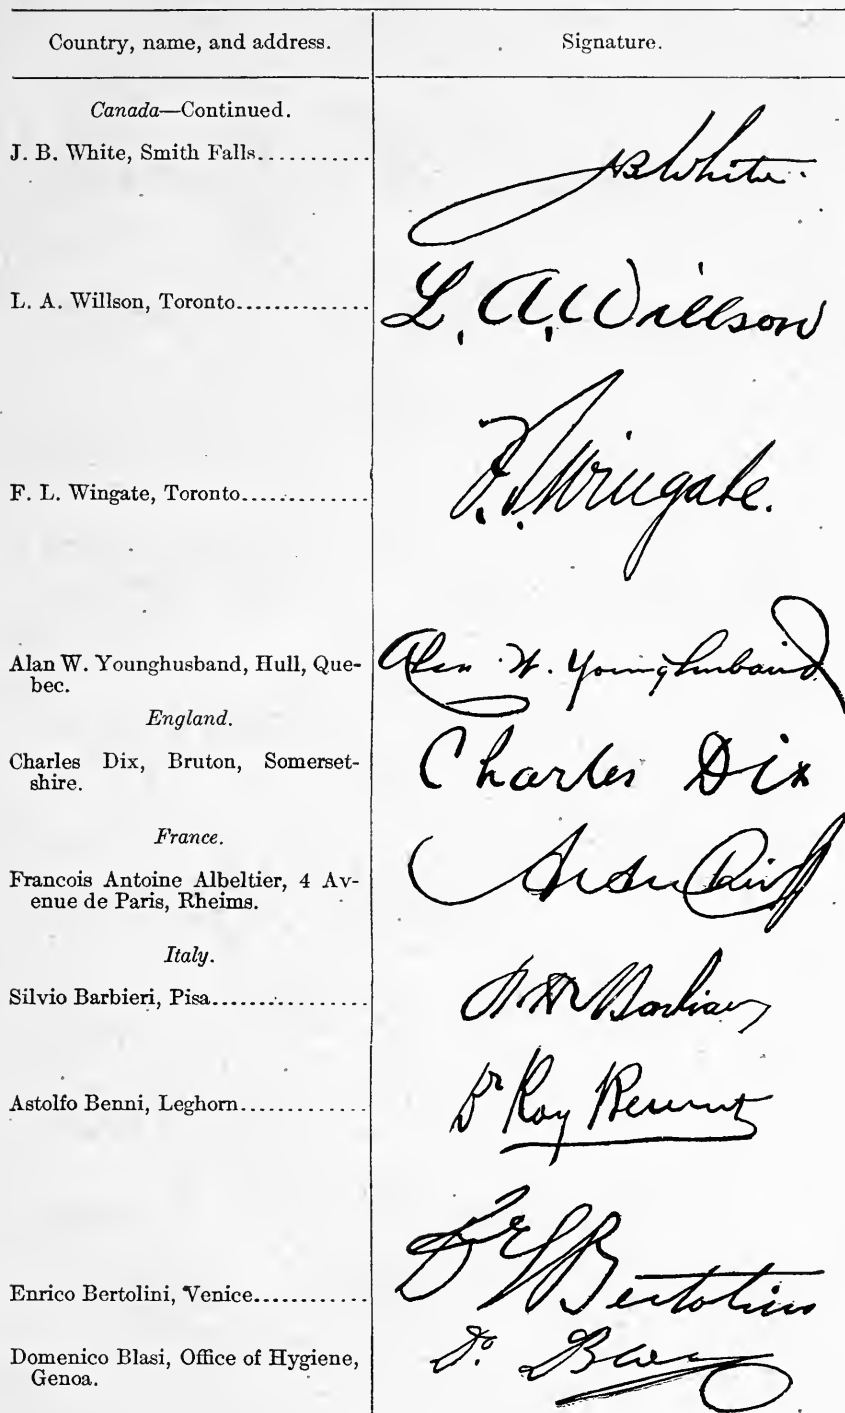 Country, name, and address. Signature.
Canada—Continued.
J. B. White, Smith Falls........... JB White.
L. A. Willson, Toronto.............. L. A. Willson
F. L. Wingate, Toronto............. F. L. Wingate.
Alan W. Younghusband, Hull, Que- Alan W. Younghusband
bec.
England.
Charles Dix, Bruton, Somerset- Charles Dix
shire.
France.
Francois Antoine Albeltier, 4 Av-
enue de Paris, Rheims.
Italy.
Silvio Barbieri, Pisa................
Astolfo Benni, Leghorn............. Dr Roy
Enrico Bertolini, Venice............ Dr E Bertolini
Domenico Blasi, Office of Hygiene, Dr.
Genoa.